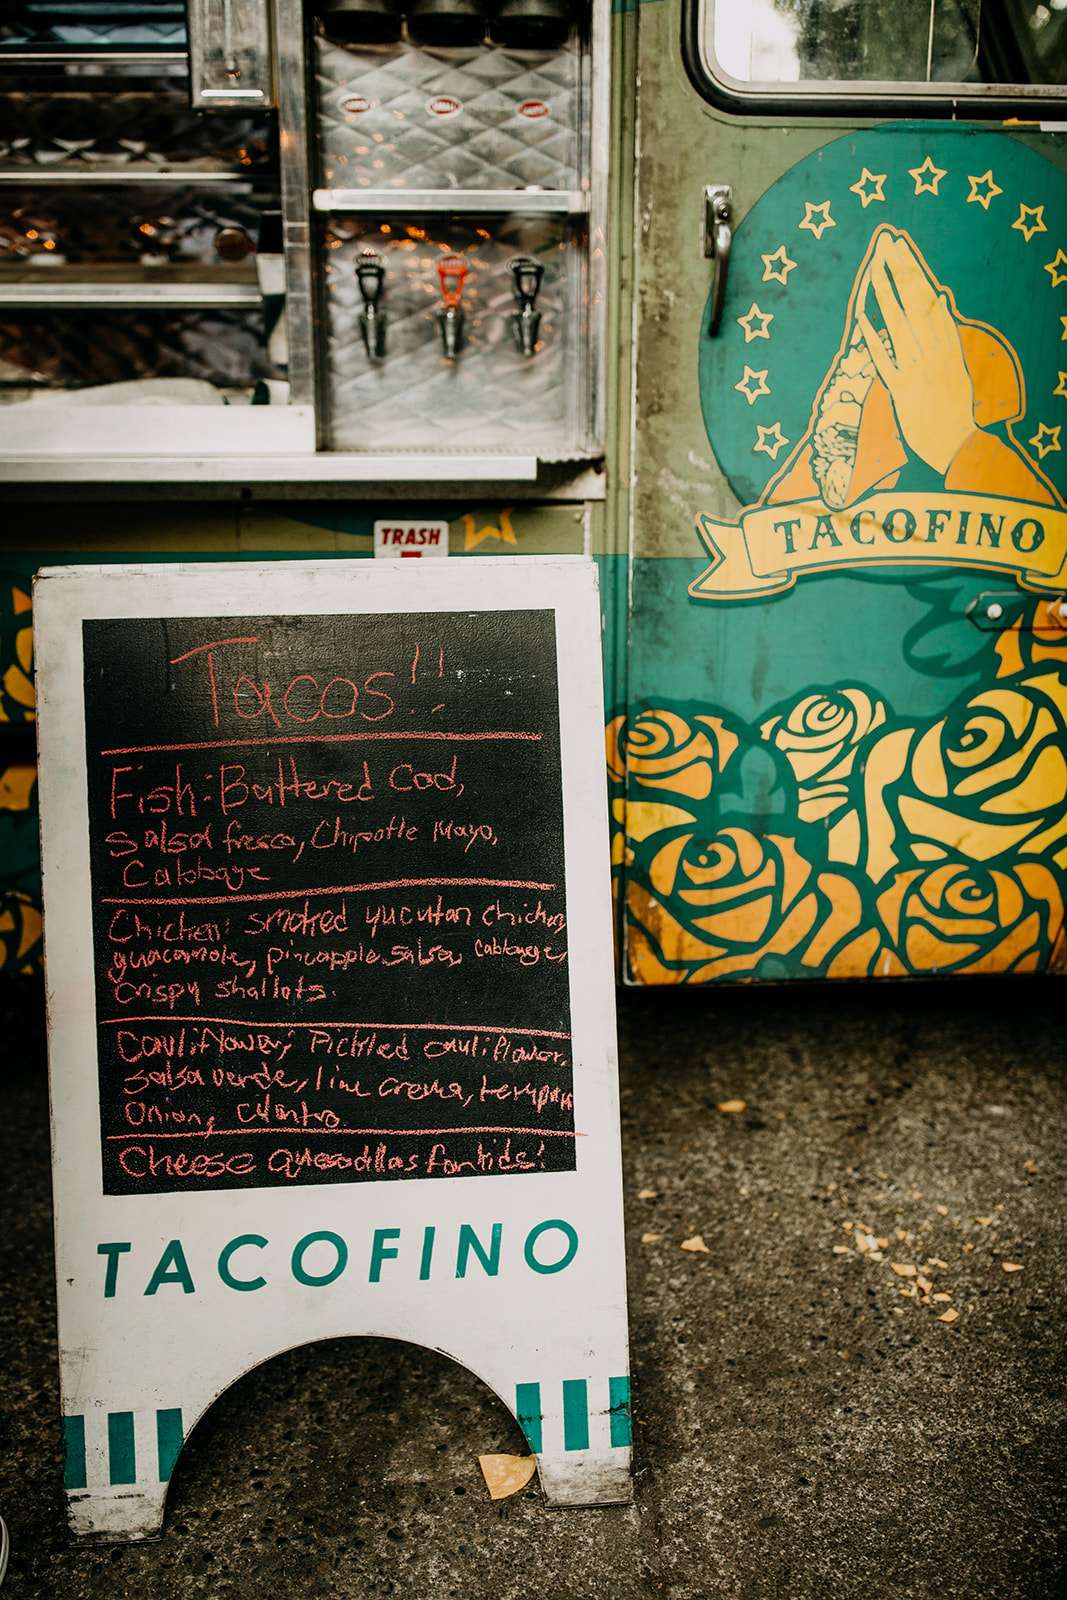 TACOFINO
TRASH
Tacos!!
Fish: Buttered Cod,
salsa fresca, Chipotle Mayo,
Cabbage
Chicken: smoked yucutan chicken,
guacamole, pineapple salsa, cabbage,
Crispy shallots.
Cauliflower; Pickled cauliflower,
salsa verde, lime crema,
Onion, cilantro.
Cheese quesadillas for kids!
TACOFINO